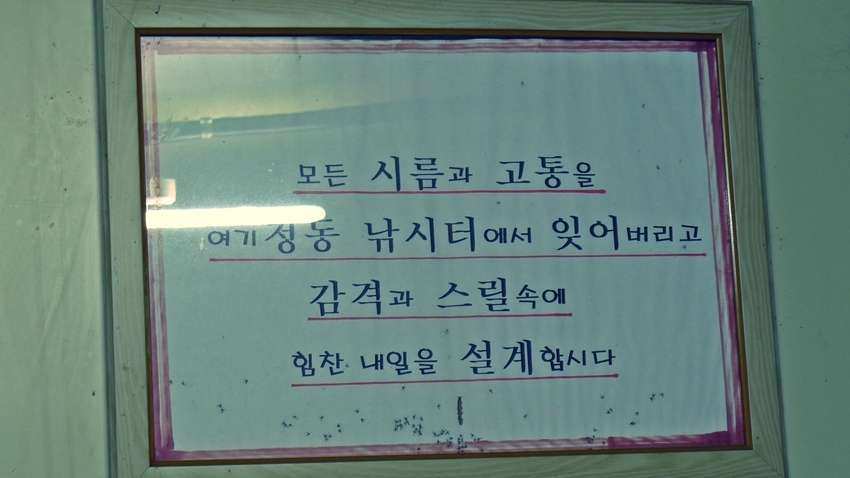 모든 시름과 고통을
여기 성동 낚시터에서 잊어버리고
감격과 스릴속에
힘찬 내일을 설계합시다